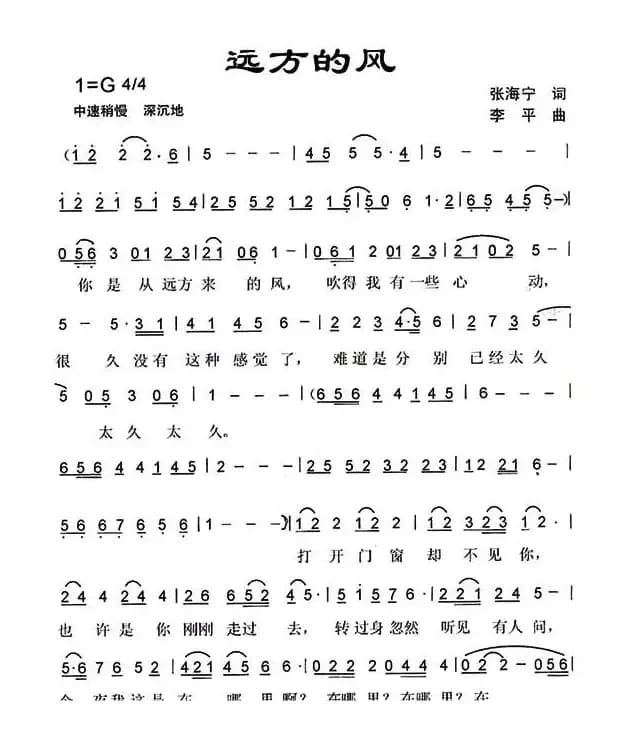 远方的风
1=G 4/4
张海宁 词
中速稍慢 深沉地
李 平 曲
(1 2 2 2·6 | 5 - - - | 4 5 5 5·4 | 5 - - - |
1 2 2 1 5 1 5 4 | 2 5 5 2 1 2 1 5 | 5 0 6 1·2 | 6 5 4 5 5 -) |
0 5 6 3 0 1 2 3 | 2 1 0 6 1 - | 0 6 1 2 0 1 2 3 | 2 1 0 2 5 - |
你 是 从 远方 来 的 风, 吹得 我 有一些 心 动,
5 - 5·3 1 | 4 1 4 5 6 - | 2 2 3 4·5 6 | 2 7 3 5 - |
很 久 没有 这种 感觉 了, 难道 是 分 别 已经 太 久
5 0 5 3 0 6 | 1 - - - | (6 5 6 4 4 1 4 5 | 6 - - - |
太 久 太 久。
6 5 6 4 4 1 4 5 | 2 - - - | 2 5 5 2 3 2 2 3 | 1 2 2 1 6 - |
5 6 6 7 6 5 6 | 1 - - -) | 1 2 1 2 | 1 2 3 2 3 1 2· |
打 开 门 窗 却 不 见 你,
2 4 2 4 | 2 6 5 2 4 5· | 5 1 5 7 6· | 2 1 2 4 5 - |
也 许 是 你 刚刚 走过 去, 转 过身 忽然 听见 有人 问,
5·6 7 6 5 | 4 2 1 4 5 6· | 0 2 2 2 0 4 4 4 | 0 2 2 - 0 5 6 |
今 夜我这是 在 哪 里 啊? 在哪 里? 在哪里? 在